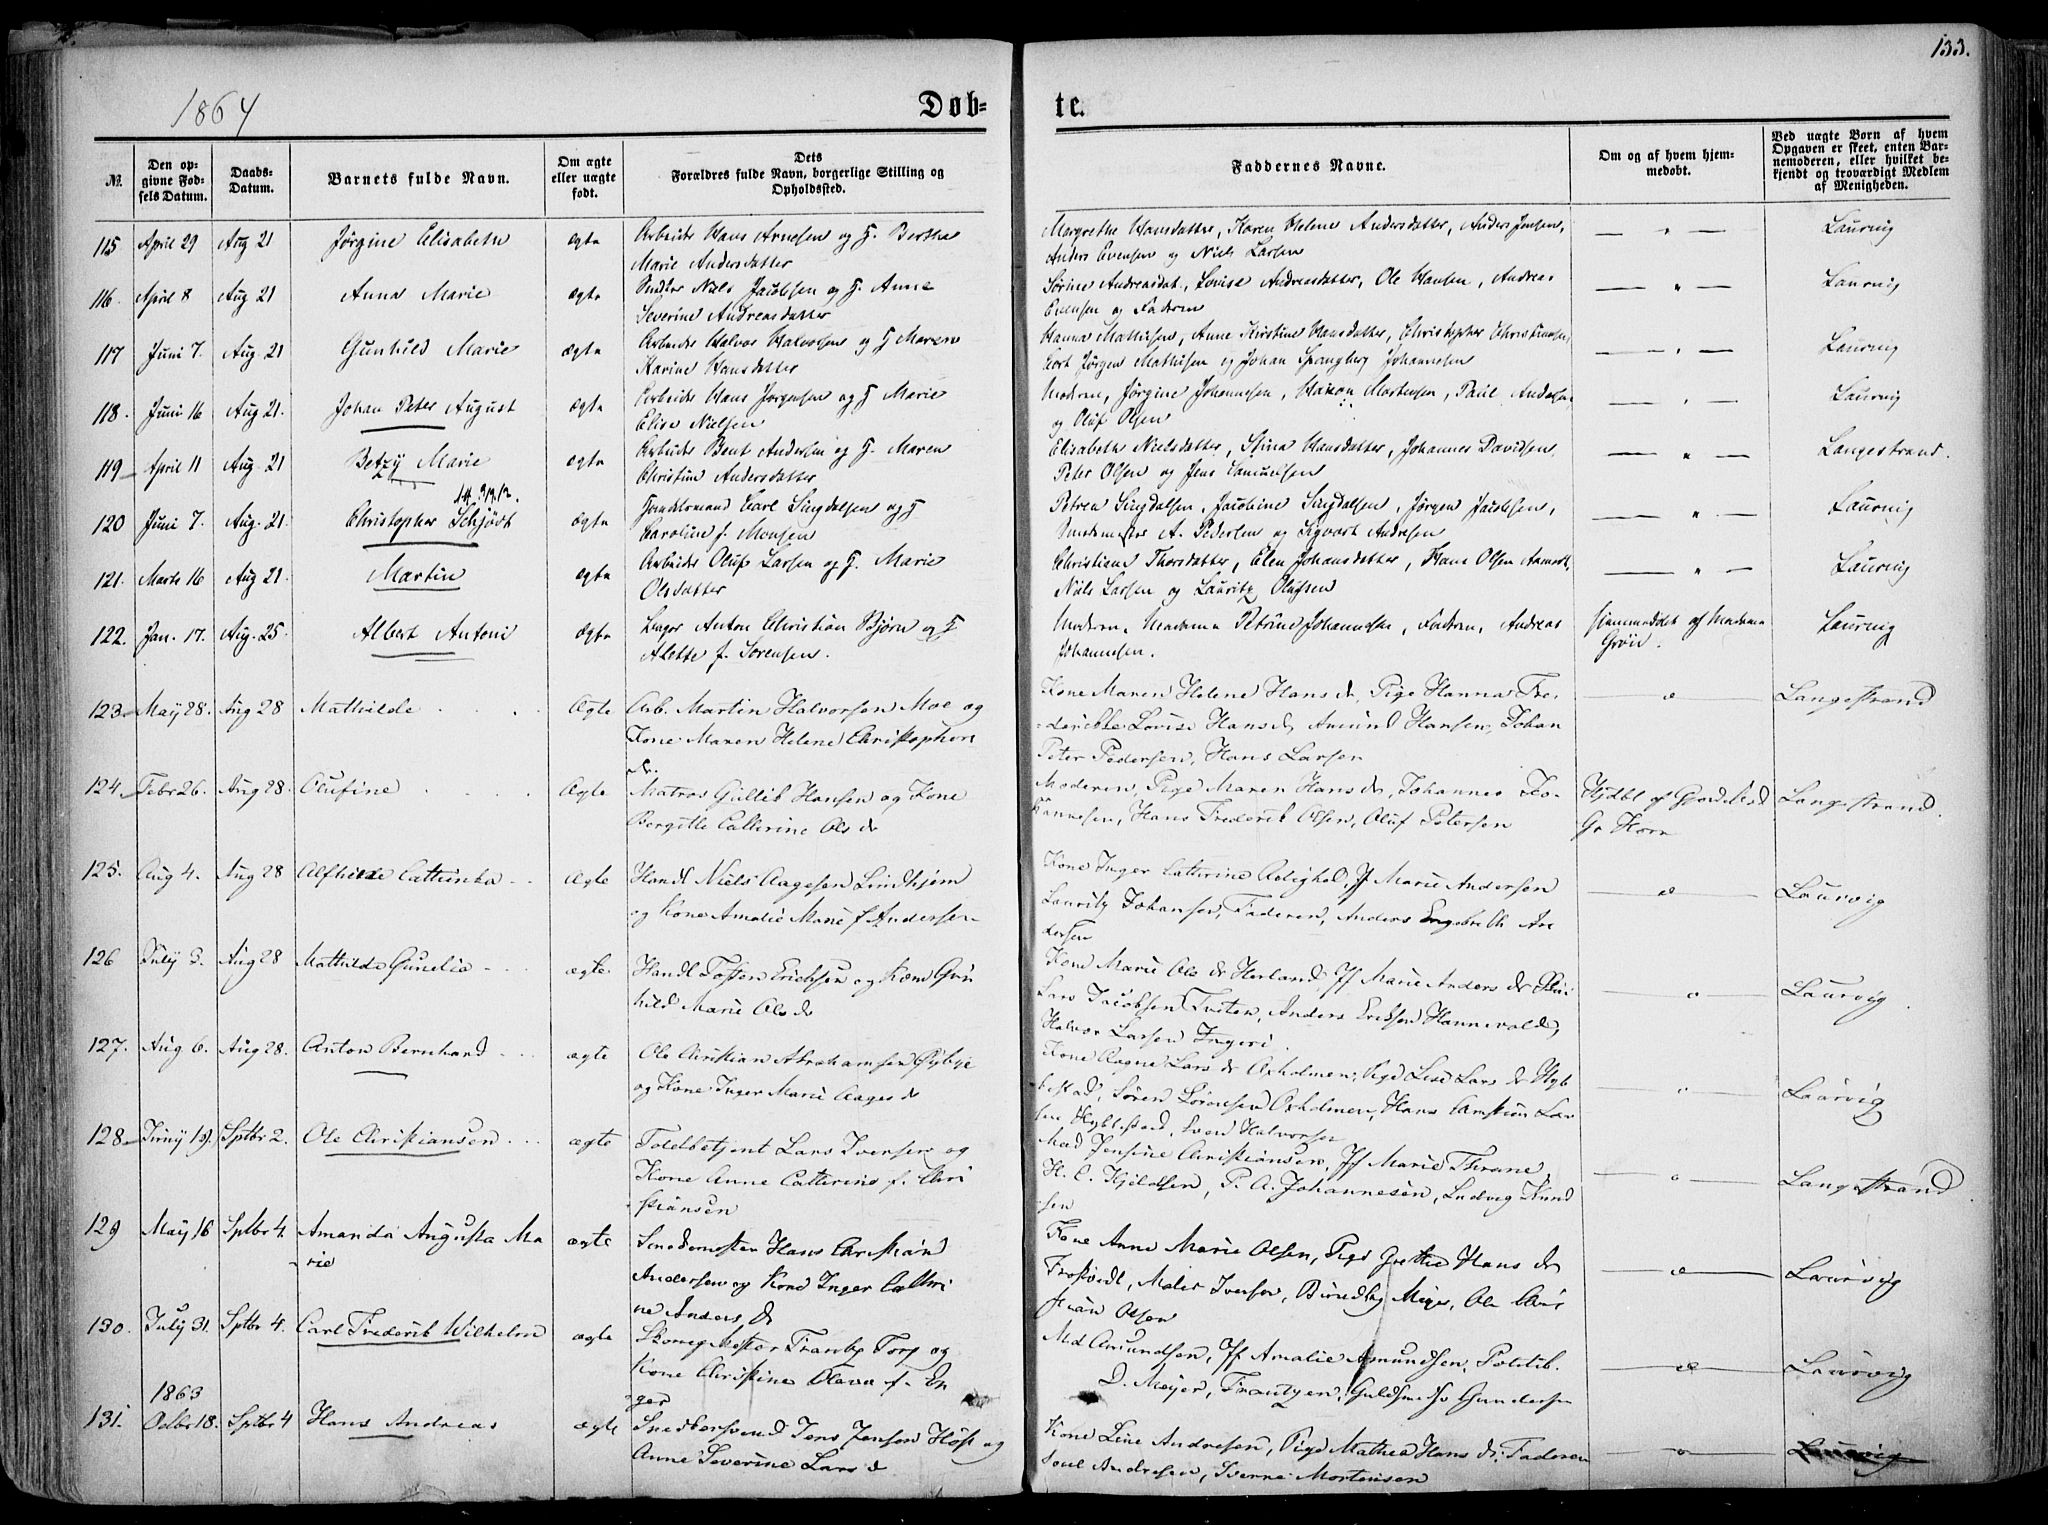 133.
1864
Døb-
te.
№.
Den op-
givne Fød-
sels Datum.
Daabs-
Datum.
Barnets fulde Navn.
Om ægte
eller uægte
født.
Dets
Forældres fulde Navn, borgerlige Stilling og
Opholdssted.
Faddernes Navne.
Om og af hvem hjem-
medøbt.
Ved uægte Børn af hvem
Opgaven er skeet, enten Bar-
nemoderen, eller hvilket be-
kjendt og troværdigt Medlem
af Menigheden.
115 April 29 Aug 21 Jørgine Elisabeth ægte Arbeider Hans Arnesen og H. Berthe
Marie Andersdatter
Margrethe Hansdatter, Karen Helene Andersdatter, Anders Jensen,
Anders Evensen og Niels Larsen
— " — Laurvig
116. April 8 Aug 21 Anna Marie ægte Niels Jacobsen og H. Anne
Severine Andreasdatter
Sørine Andreasdat., Louise Andreasdatter, Ole Hansen, Andreas
Evensen og Faderen
— " — Laurvig
117 Juni 7. Aug. 21 Gunhild Marie ægte Arbeider Halvor Halvorsen og H Maren
Karine Hansdatter
Hanna Mathisen, Anne Kirstine Hansdatter, Christopher Christensen,
Jørgen Mathisen og Johan Spangberg Johannesen
— " — Laurvig
118. Juni 16 Aug 21. Johan Peter August ægte Arbeider Hans Jørgensen og H Marie
Elise Nielsen
Moderen, Jørgine Johannesen, Haxon Mortensen, Paul Andersen
og Oluf Olsen
— " — Laurvig
119 April 11 Aug. 21 Betzy Marie ægte Arbeider Bent Andersen og H. Maren
Christine Andersdatter
Elisabeth Nielsdatter, Stina Hansdatter, Johannes Davidsen,
Peter Olsen og Jens Samuelsen
— " — Langestrand.
120 Juni 7. Aug. 21. Christopher Schjødt ægte Carl Singdalsen og H
Karoline f. Monsen
Petrea Singdalsen, Jacobine Singdalsen, Jørgen Jacobsen,
A. Pedersen og Sigvart Andresen
— " — Laurvig
121. Marts 16 Aug 21. Martin ægte Arbeider Oluf Larsen og H. Marie
Olsdatter
Christiane Thorsdatter, Elen Johansdatter, Hans Olsen
Niels Larsen og Lauritz Olufsen
— " — Laurvig
122. Jan. 17. Aug. 25. Albert Antoni ægte Anton Christian Bjørn og H
Alette f. Sørensen.
Moderen, Madame Petrine Johannesen, Faderen, Andreas
Johannesen.
Hjemmedøbt af Madame
Grøn. Laurvig
123 May 28. Aug 28 Mathilde Ægte Arb. Martin Halvorsen Moe og
Kone Maren Helene Christophers
dr.
Kone Maren Helene Hans dr, Pige Hanna Fre-
derikke Lovise Hans dr, Amund Hansen, Johan
Peter Pedersen, Hans Larsen
Langestrand
124 Febr 26. Aug 28. Olufine Ægte Matros Gullik Hansen og Kone
Bergitte Cathrine Ols dr
Moderen, Pige Maren Hans dr, Johannes Jo-
hannesen, Hans Frederik Olsen, Oluf Petersen
Hjdbt af
Langestrand
125. Aug 4. Aug 28 Alfhilde Cathinka Ægte Handl Niels Aagesen Lindhjem
og Kone Amalie Marie f Andersen
Kone Inger Cathrine Jf Marie Andersen
Lauritz Johansen, Faderen, Anders Engebreth An
dersen
Laurvig
126 July 3. Aug 28 Mathilde Gunelia ægte Handl Tosten Ericksen og Kone Gun
hild Marie Ols dr
Kone Marie Ols dr Herland, Jf Marie Anders dr
Lars Jacobsen Tveten, Anders Eriksen Hannevold,
Halvor Larsen
Laurvig
127. Aug 6. Aug 28. Anton Bernhard ægte Ole Christian Abrahamsen
og Kone Inger Marie Aages dr
Kone Ragne Lars dr Axholmen, Pige Lise Lars dr Hyb
bestad, Søren Sørensen Axholmen, Hans Christian Lar
sen Hybbestad, Sven Halvorsen
Laurvig
128 Juny 19. Sptbr 2. Ole Christiansen ægte Toldbetjent Lars Iversen og
Kone Anne Catterine f. Chri
stiansen
Mad Jensine Christiansen, Jf Marie Thrane,
H. C. Kjeldsen, P. A. Johannesen, Ludvig Knud
sen
Langestrand
129 May 16 Sptbr 4. Amanda Augusta Ma
rie ægte Smedemester Hans Christian
Andersen og Kone Inger Cathri
ne Anders dr
Kone Anne Marie Olsen, Pige Grethe Hans dr
Maler Iversen, Ole Chri
stian Olsen
Laurvig
130. July 31. Sptbr 4. Carl Frederik Wilhelm ægte Torp og
Kone Christine Olava f. En
ger
Md Amundsen, Jf Amalie Amundsen, Politib.
D. Meyer, Frantzen, Guldsm Gundersen
Laurvig
1863
131. Octbr 18. Sptbr 4 Hans Andreas ægte Snedkersvend Jens Jensen Høst og
Anne Severine Lars dr
Kone Line Andresen, Pige Mathea Hans dr, Faderen
Andresen, Mortensen
Laurvig